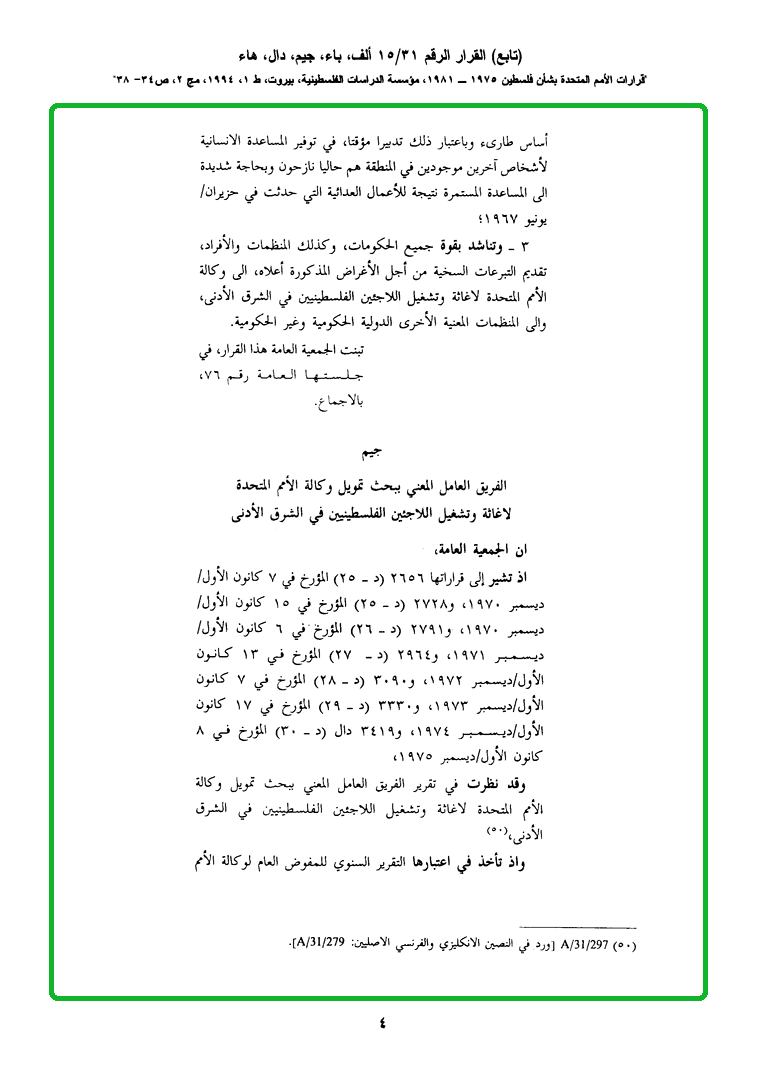 (تابع) القرار الرقم ١٥/٣١ ألف، باء، جيم، دال، هاء
"قرارات الأمم المتحدة بشأن فلسطين ١٩٧٥ – ١٩٨١، مؤسسة الدراسات الفلسطينية، بيروت، ط ١، ١٩٩٤، مج ٢، ص٣٤- ٣٨"
أساس طارىء وباعتبار ذلك تدبيرا مؤقتا، في توفير المساعدة الانسانية
لأشخاص آخرين موجودين في المنطقة هم حاليا نازحون وبحاجة شديدة
الى المساعدة المستمرة نتيجة للأعمال العدائية التي حدثت في حزيران/
يونيو ١٩٦٧؛
٣ ـ وتناشد بقوة جميع الحكومات، وكذلك المنظمات والأفراد،
تقديم التبرعات السخية من أجل الأغراض المذكورة أعلاه، الى وكالة
الأمم المتحدة لاغاثة وتشغيل اللاجئين الفلسطينيين في الشرق الأدنى،
والى المنظمات المعنية الأخرى الدولية الحكومية وغير الحكومية.
تبنت الجمعية العامة هذا القرار، في
جلستها العامة رقم ٧٦،
بالاجماع.
جيم
الفريق العامل المعني ببحث تمويل وكالة الأمم المتحدة
لاغاثة وتشغيل اللاجئين الفلسطينيين في الشرق الأدنى
ان الجمعية العامة،
اذ تشير إلى قراراتها ٢٦٥٦ (د ـ ٢٥) المؤرخ في ٧ كانون الأول/
ديسمبر ١٩٧٠، و٢٧٢٨ (د ـ ٢٥) المؤرخ في ١٥ كانون الأول/
ديسمبر ١٩٧٠، و٢٧٩١ (د ـ ٢٦) المؤرخ في ٦ كانون الأول/
ديسمبر ١٩٧١، و٢٩٦٤ (د ـ ٢٧) المؤرخ في ١٣ كانون
الأول/ديسمبر ١٩٧٢، و٣٠٩٠ (د ـ ٢٨) المؤرخ في ٧ كانون
الأول/ديسمبر ١٩٧٣، و٣٣٣٠ (د ـ ٢٩) المؤرخ في ١٧ كانون
الأول/ديسمبر ١٩٧٤، و٣٤١٩ دال (د ـ ٣٠) المؤرخ في ٨
كانون الأول/ديسمبر ١٩٧٥،
وقد نظرت في تقرير الفريق العامل المعني ببحث تمويل وكالة
الأمم المتحدة لاغاثة وتشغيل اللاجئين الفلسطينيين في الشرق
الأدنى،(٥٠)
واذ تأخذ في اعتبارها التقرير السنوي للمفوض العام لوكالة الأمم
(٥٠) A/31/297 [ورد في النصين الانكليزي والفرنسي الاصليين: A/31/279].
٤